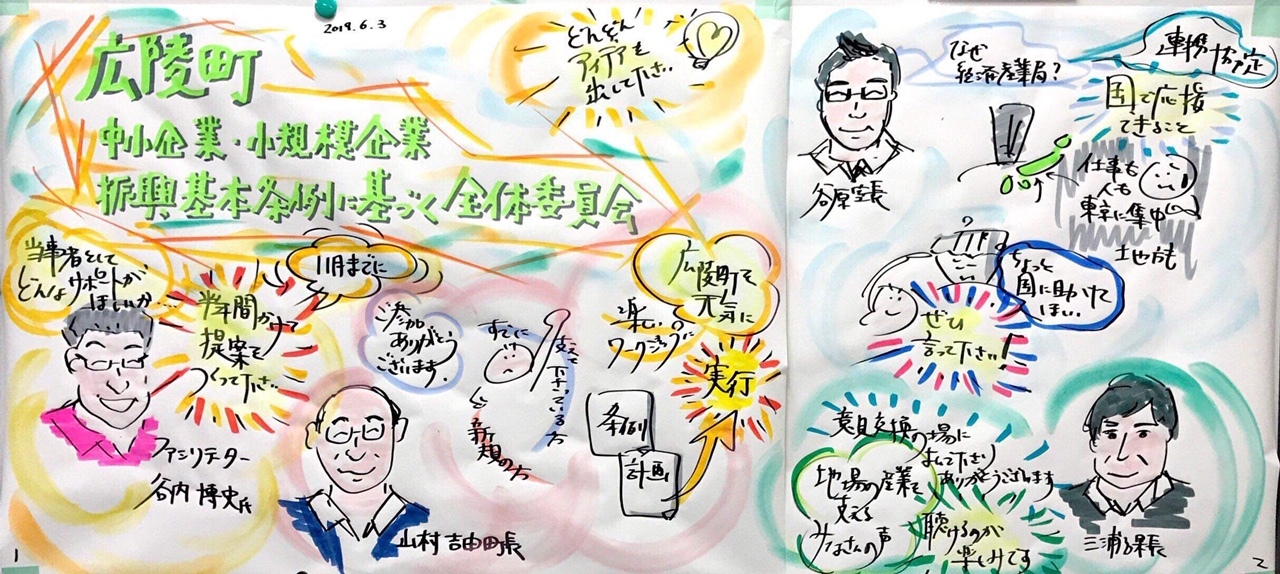 2019.6.3
広陵町
中小企業・小規模企業
振興基本条例に基づく全体委員会
どんどん
アイデアを
出して下さい
当事者として
どんなサポートが
ほしいか…
半年間かけて
提案を
つくって下さい
11月までに
ファシリテーター
谷内 博史氏
ご参加
ありがとう
ございます。
すでに
支えて下さっている方
新規の方
山村 吉由町長
楽しい
ワーキングに
広陵町を
元気に
実行
条例
計画
1
谷原室長
なぜ
経済産業局?
連携協定
国で応援
できること
仕事も
人も
東京に集中
地方も
ちょっと
国に助けて
ほしい
ぜひ
言って下さい!
意見交換の場に
よんで下さり
ありがとうございます
地場の産業を
支える
みなさんの声
聴けるのが
楽しみです
三浦課長
2